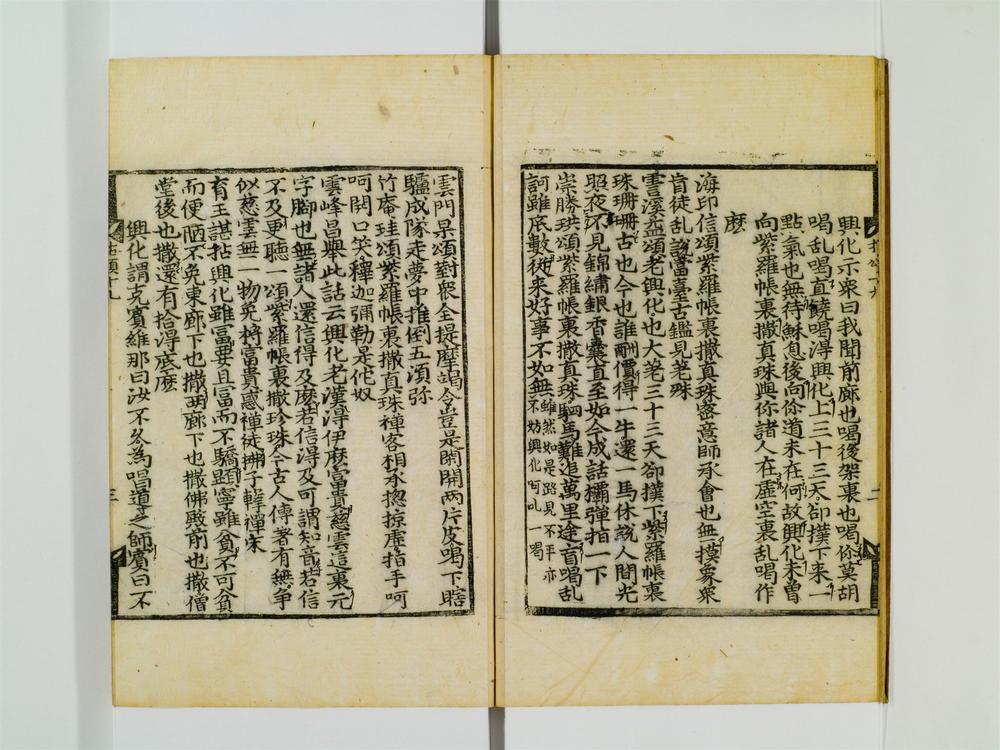 興化示衆曰我聞前廊也喝後架裏也喝你莫胡
喝乱喝直饒喝得興化上三十三天却撲下來一
點氣也無待穌息後向你道未在何故興化未曾
向紫羅帳裏撒真珠與你諸人在虛空裏乱喝作
麽
海印信頌紫羅帳裏撒真珠密意師承會也無一摸衆衆
盲徒乱說當臺古鑑見
雲溪益頌老興化也大差三十三天卻撲下紫羅帳裏
珠珊珊古也今也誰酬價得一牛還一馬休說人間光
照夜不見錦繡銀香囊直至如今成話欛彈指一下
崇勝珙頌紫羅帳裏撒真珠駟馬難追萬里途盲喝乱
訶雖底數從來好事不如無雖然如是路見不平亦
不妨興化呵叱一喝
雲門杲頌對衆全提摩竭令豈是閑開兩片皮喝下瞎
驢成隊走夢中推倒五湏弥
竹庵珪頌紫羅帳裏撒真珠禪客相承揔掠虛指手呵
呵開口笑釋迦彌勒是佗奴
雲峰昌舉此話云興化老漢得伊麽富貴慈雲這裏元
字脚也無諸人還信得及麽若信得及可謂知音若信
不及更聽一頌紫羅帳裏撒珍珠今古人傳著有無争
似慈雲無一物免將富貴惑禪徒拂子轉禪床
育王諶拈興化雖富要且富而不驕顯寧雖貧不可貧
而便陋不免東廊下也撒西廊下也撒佛殿前也撒僧
堂後也撒還有拾得底麽
興化謂克賓維那曰汝不久為唱道之師賓曰不
拈頌十九
三
二